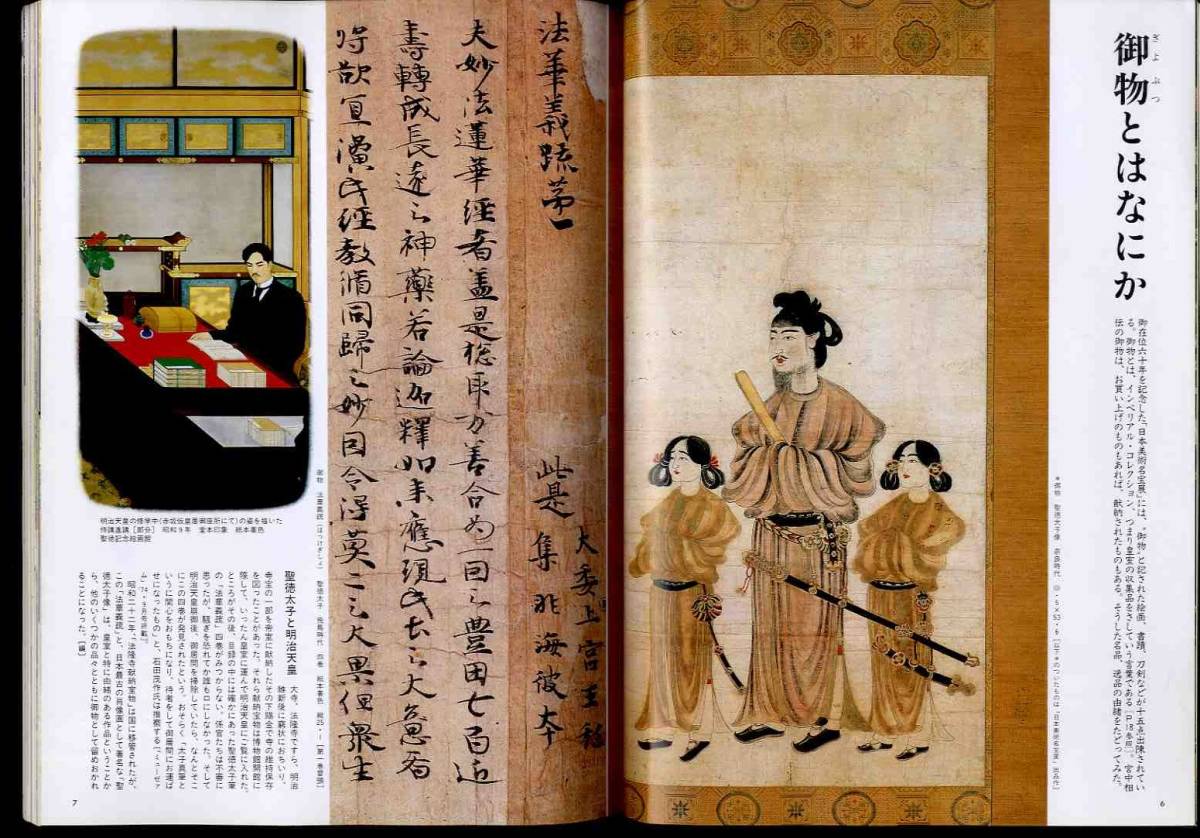 御物とはなにか
ぎょぶつ
御在位六十年を記念した「日本美術名宝展」には、“御物”と記された絵画、書蹟、刀剣などが十五点出陳されてい
る。御物とは、インペリアル・コレクション、つまり皇室の収集品をさしていう言葉である[P18参照]。宮中相
伝の御物は、お買い上げのものもあれば、献納されたものもある。そうした名品、逸品の由緒をたどってみた。
*御物 聖徳太子像 奈良時代
6
法華義疏第一
此是
大委上宮王私
集非海彼本
夫妙法蓮華經者盖是惣取万善合為一因之豊田七百近
壽轉成長遠之神藥若論迦釋如来應現此土之大意者
将欲宜演此經教脩同歸之妙因令得莫二之大果但衆生
御物 法華義疏[ほっけぎしょ] 聖徳太子 飛鳥時代 四巻 紙本墨書 縦25・1[第一巻巻頭]
明治天皇の修学中(赤坂仮皇居御座所にて)の姿を描いた
侍講進講[部分] 昭和9年 堂本印象 絹本着色
聖徳記念絵画館
聖徳太子と明治天皇
大寺、法隆寺ですら、明治
維新後に窮状におちいり、
寺宝の一部を帝室に献納しその下賜金で寺の維持保存
を図ったことがあった。それら献納宝物は博物館開館に
際して、いったん皇室に運んで明治天皇にご覧に入れた。
ところがその後、目録の中には確かにあった聖徳太子筆
の「法華義疏」四巻がみつからない。係官たちは不審に
思ったが、騒ぎを恐れてか誰も口にしなかった。そして
明治天皇崩御後、御居間を掃除していたら、なんとそこ
にこの四巻が発見されたという。おそらく「太子真筆と
いうに関心をおもちになり、侍者をして御居間にお運ば
せになったもの」と、石田茂作氏は推察する[「ミューゼア
ム」'74・9月号所載]。
昭和二十二年、「法隆寺献納宝物」は国に移管されたが、
この「法華義疏」と、日本最古の肖像画として著名な「聖
徳太子像」は、皇室と特に由緒のある作品ということか
ら、他のいくつかの品々とともに御物として留めおかれ
ることになった。[編]
7